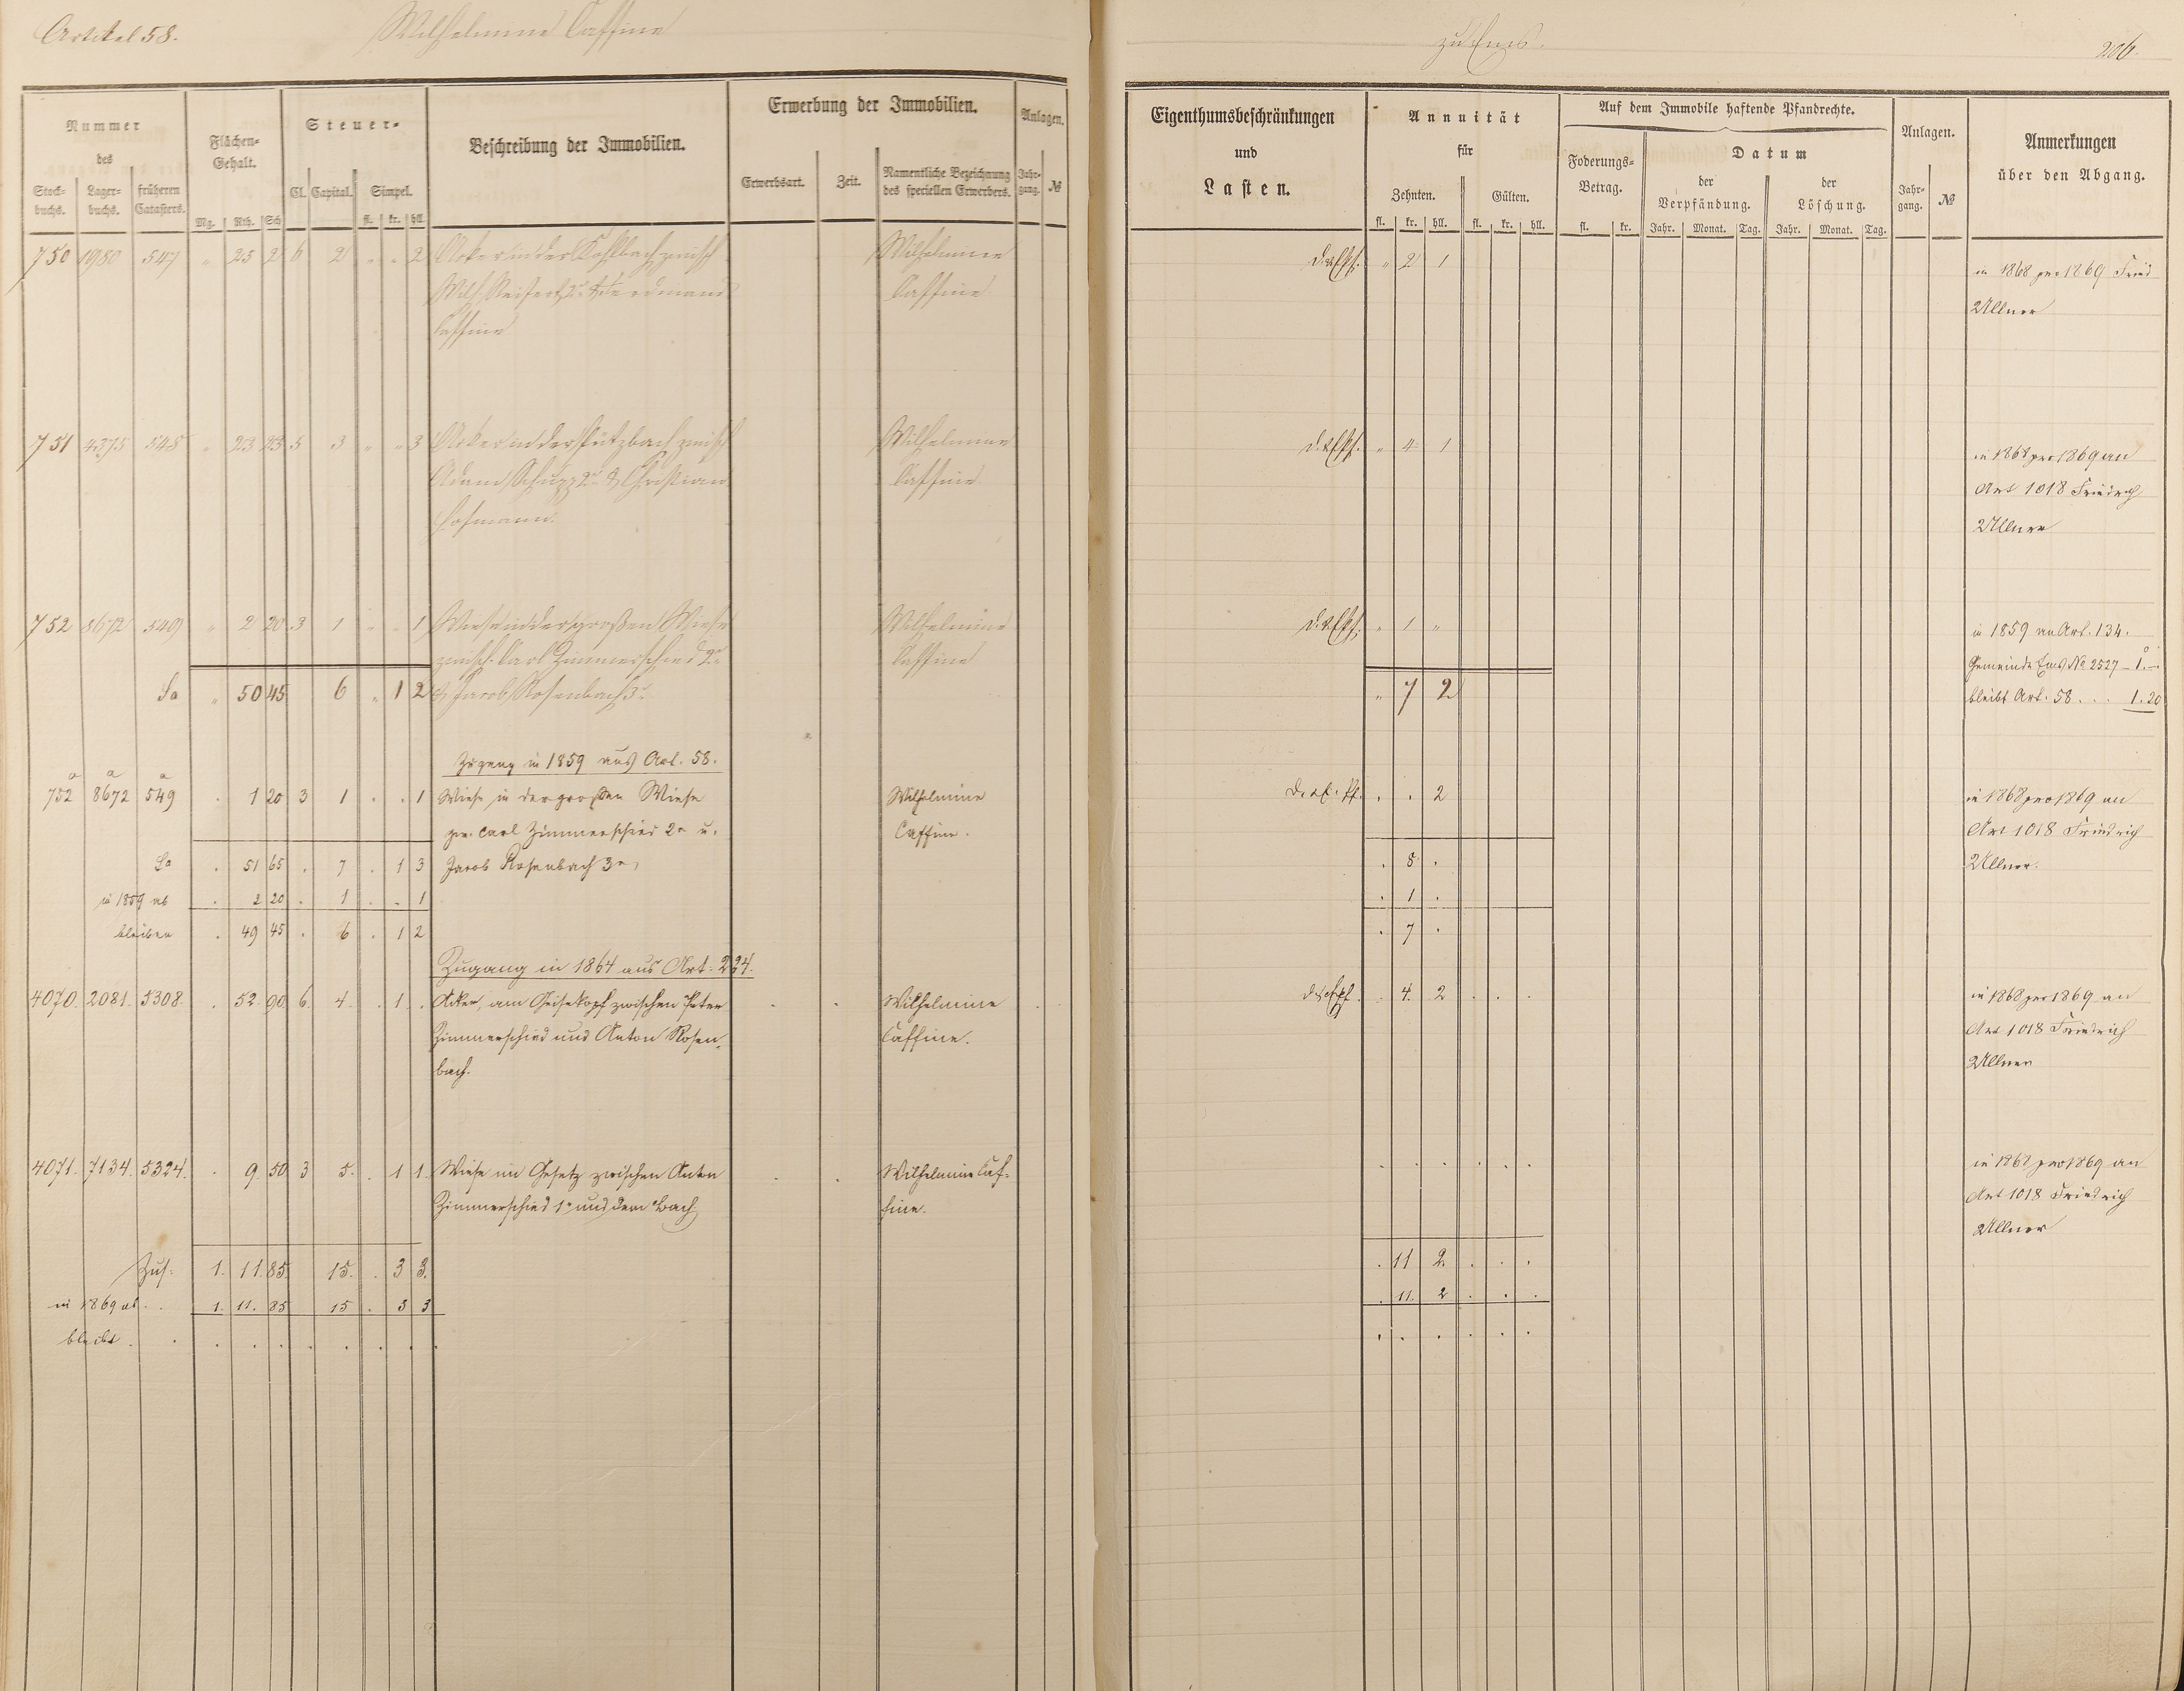 Artikel 58.
Wilhelmine Caffine
zu Ems.
206.
Nummer
des
Stock-
buchs.
Lager-
buchs.
früheren
Catasters.
Flächen-
Gehalt.
Mg. Rth. Sch
Steuer-
Cl. Capital. Simpel.
fl. kr. hll.
Beschreibung der Immobilien.
Erwerbung der Immobilien.
Erwerbsart.
Zeit.
Namentliche Bezeichnung
des speciellen Erwerbers.
Anlagen.
Jahr-
gang.
№
Eigenthumsbeschränkungen
und
Lasten.
Annuität
für
Zehnten.
Gülten.
fl. kr. hll. fl. kr. hll.
Auf dem Immobile haftende Pfandrechte.
Foderungs-
Betrag.
fl. kr.
Datum
der
Verpfändung.
der
Löschung.
Jahr. Monat. Tag. Jahr. Monat. Tag.
Anlagen.
Jahr-
gang.
№
Anmerkungen
über den Abgang.
750 1980 547 " 25 2 6 2 " " 2 Acker in der Kohlbach zwisch Wilhelmine " 2 1 in 1868 pro 1869 Fried
Wilh. 2r & Ferdinand Caffine Ullner
Caffine
751 4375 548 " 23 23 5 3 " " 3 Acker in der Pützbach zwisch Wilhelmine " 4 1 in 1868 pro 1869 an
Adam Schupp 2r & Christian Caffine Art 1018 Friedrich
Hofmann. Ullner
752 8672 549 " 2 20 3 1 " " 1 Wiese in der großen Wiese Wilhelmine " 1 " in 1859 an Art. 134.
zwisch. Carl Zimmerschied 2r Caffine Gemeinde Ems No 2527 – 1. –
Sa " 50 45 6 " 1 2 & Jacob Rosenbach 3r. " 7 2 bleibt Art. 58 . . . 1.20
Zugang in 1859 aus Art. 58.
752a 8672a 549a . 1 20 3 1 . . 1 Wiese in der großen Wiese Wilhelmine . . 2 in 1868 pro 1869 an
zw. Carl Zimmerschied 2r u. Caffine. Art 1018 Friedrich
Sa . 51 65 . 7 . 1 3 Jacob Rosenbach 3r, . 8 . Ullner.
in 1859 ab . 2 20 . 1 . . 1 . 1 .
bleiben . 49 45 . 6 . 1 2 . 7 .
Zugang in 1864 aus Art: 234.
4070. 2081. 5308. . 52. 90. 6. 4. . 1 . Acker, am Geisekopf zwischen Peter Wilhelmine . 4. 2 . . . in 1868 pro 1869 an
Zimmerschied und Anton Rosen- Caffine. Art 1018 Friedrich
bach. Ullner
4071. 7134. 5324. . 9. 50. 3 5. . 1 1. Wiese im Gesetz zwischen Anton Wilhelmine Caf- . . . . . . in 1868 pro 1869 an
Zimmerschied 1r und dem Bach fine. Art 1018 Friedrich
Ullner
Zus. 1. 11. 85. 15. . 3 3. . 11 2 . . .
in 1869 ab . . 1. 11. 85 15 . 3 3 . 11. 2 . . .
bleibt . . . . . . . . . . . . . . . .